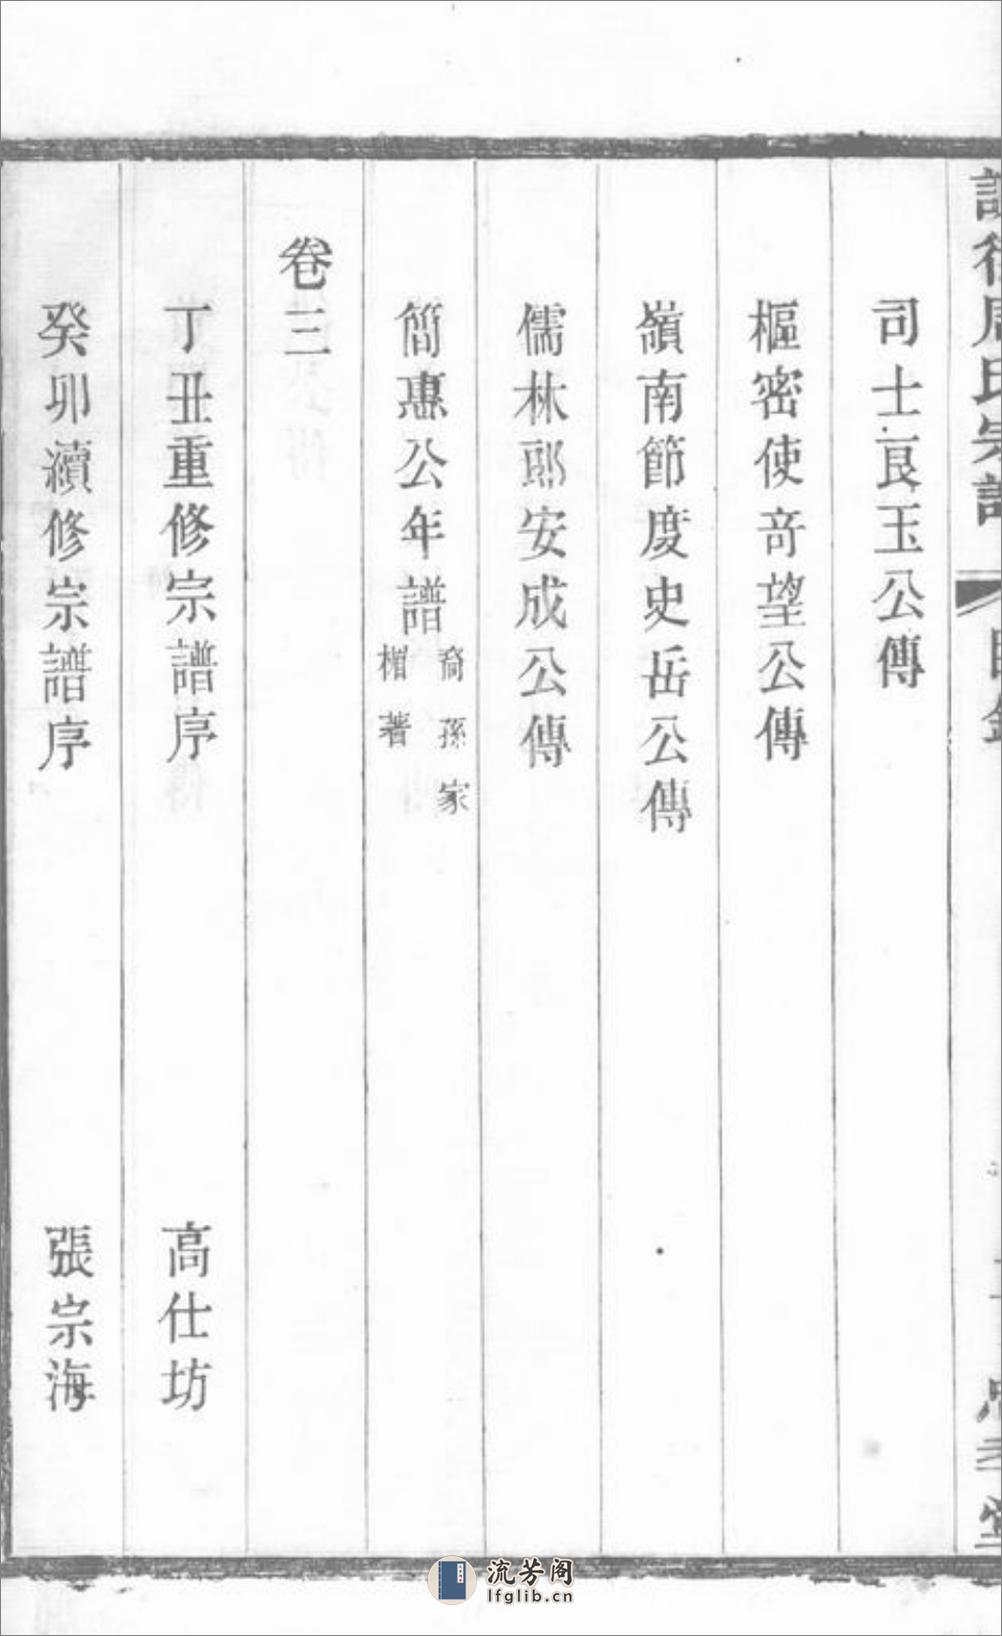 司士良玉公傳
樞密使奇望公傳
嶺南節度史岳公傳
儒林郎安成公傳
簡惠公年譜 裔孫家楣著
卷三
丁丑重修宗譜序 高仕坊
癸卯續修宗譜序 張宗海
流芳阁
lfglib.cn